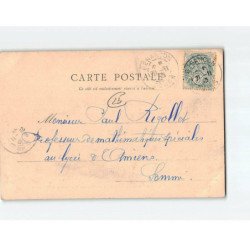 CARTE POSTALE
Ce côté est exclusivement réservé à l'adresse
15
Monsieur Paul Rigollot
professeur de mathématiques spéciales
au lycée d'Amiens
Somme